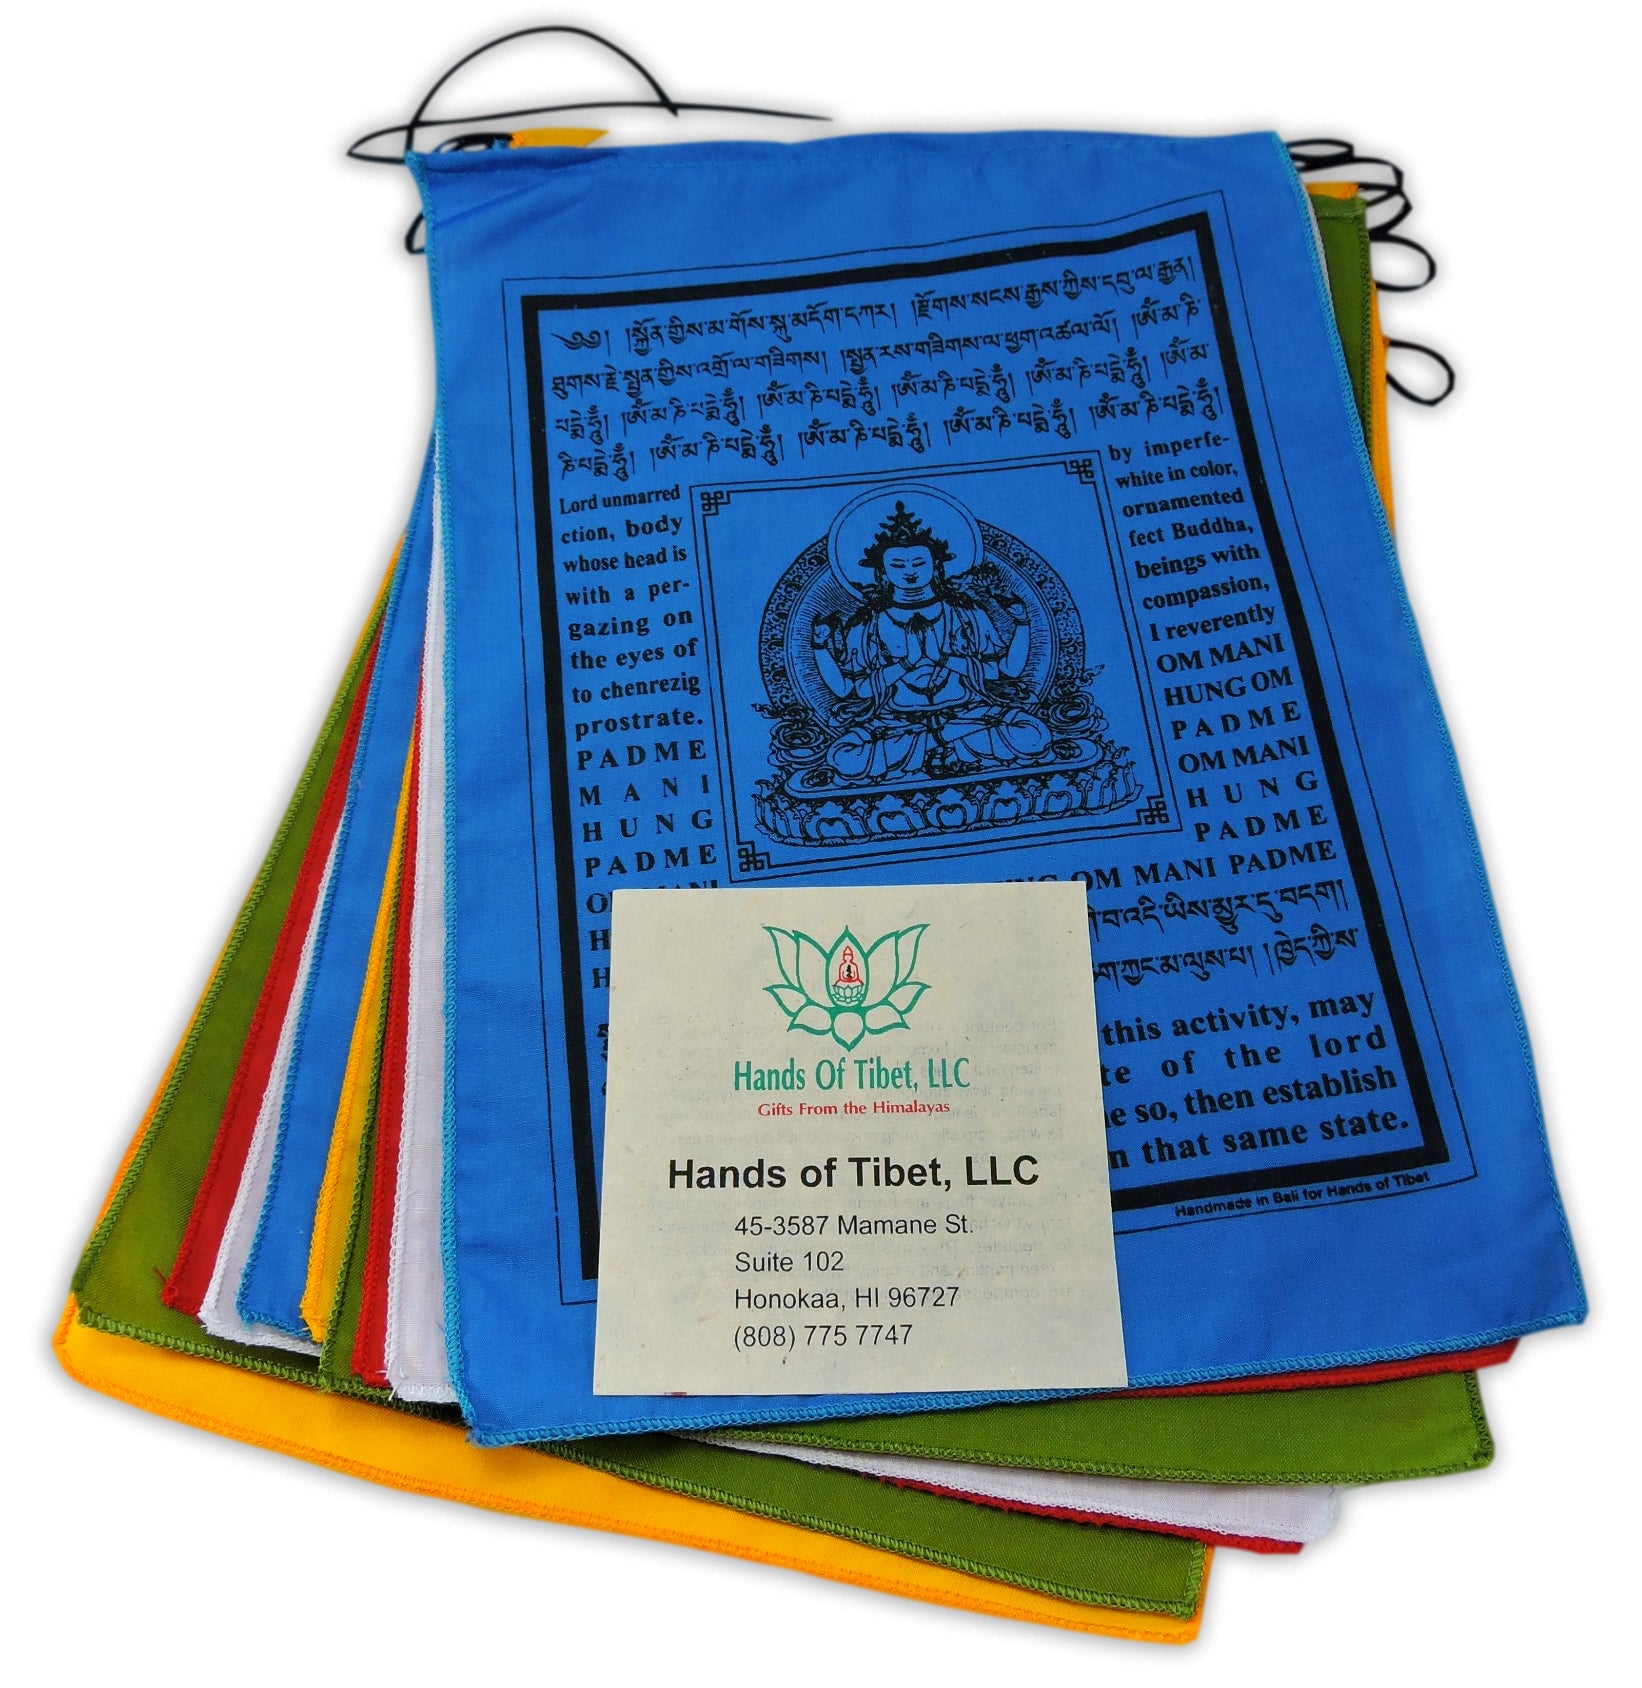 ༄༅། །སྐྱོན་གྱིས་མ་གོས་སྐུ་མདོག་དཀར། །རྫོགས་སངས་རྒྱས་ཀྱིས་དབུ་ལ་རྒྱན།
ཐུགས་རྗེ་སྤྱན་གྱིས་འགྲོ་ལ་གཟིགས། །སྤྱན་རས་གཟིགས་ལ་ཕྱག་འཚལ་ལོ། །ཨོཾ་མ་ཎི་
པདྨེ་ཧཱུྃ། །ཨོཾ་མ་ཎི་པདྨེ་ཧཱུྃ། །ཨོཾ་མ་ཎི་པདྨེ་ཧཱུྃ། །ཨོཾ་མ་ཎི་པདྨེ་ཧཱུྃ། །ཨོཾ་མ་ཎི་པདྨེ་ཧཱུྃ། །ཨོཾ་མ་
ཎི་པདྨེ་ཧཱུྃ། །ཨོཾ་མ་ཎི་པདྨེ་ཧཱུྃ། །ཨོཾ་མ་ཎི་པདྨེ་ཧཱུྃ། །ཨོཾ་མ་ཎི་པདྨེ་ཧཱུྃ། །ཨོཾ་མ་ཎི་པདྨེ་ཧཱུྃ།
Lord unmarred by imperfe-
ction, body white in color,
whose head is ornamented
with a per- fect Buddha,
gazing on beings with
the eyes of compassion,
to chenrezig I reverently
prostrate. OM MANI
PADME HUNG OM
MANI PADME
HUNG OM MANI
PADME HUNG
PADME
OM MANI PADME
འདི་ཡིས་མྱུར་དུ་བདག།
ཀྱང་མ་ལུས་པ། །ཁྱེད་ཀྱིས་
this activity, may
of the lord
so, then establish
that same state.
Handmade in Bali for Hands of Tibet
Hands Of Tibet, LLC
Gifts From the Himalayas
Hands of Tibet, LLC
45-3587 Mamane St.
Suite 102
Honokaa, HI 96727
(808) 775 7747